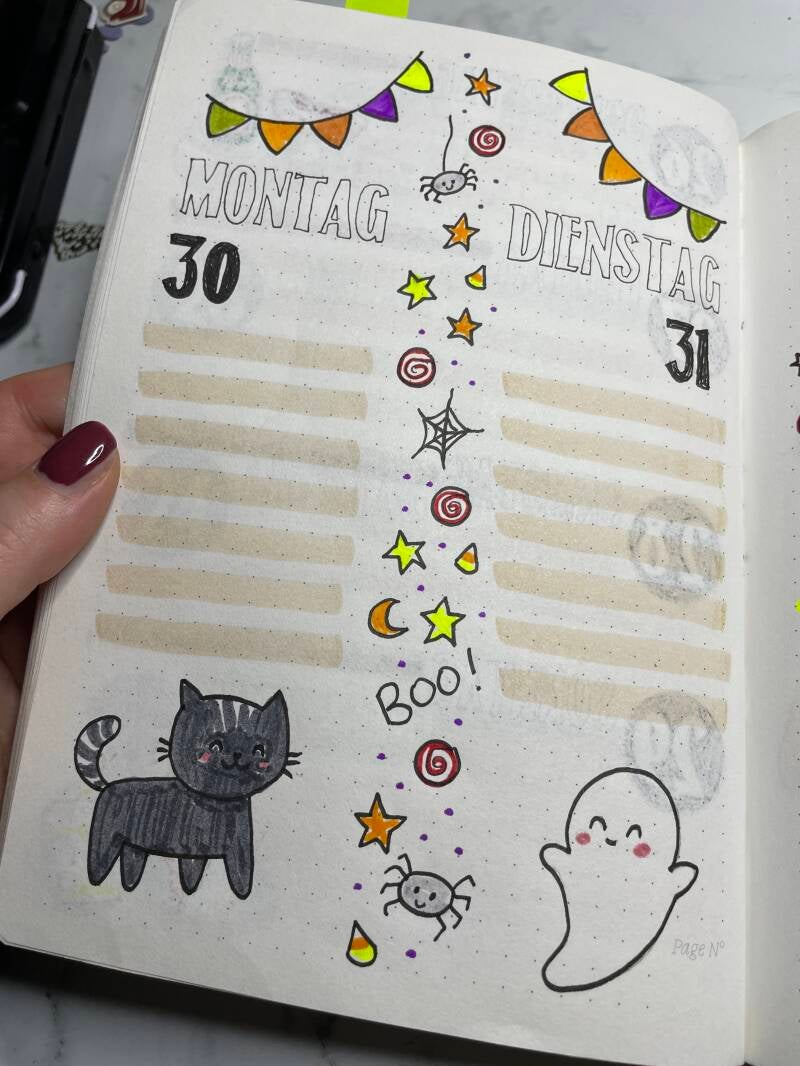 MONTAG
30
DIENSTAG
31
BOO!
Page Nº